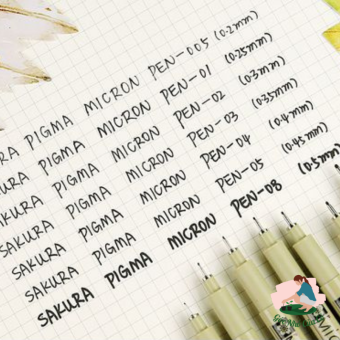 RA PIGMA MICRON PEN-005 (0.2mm)
KURA PIGMA MICRON PEN-01 (0.25mm)
SAKURA PIGMA MICRON PEN-02 (0.3mm)
SAKURA PIGMA MICRON PEN-03 (0.35mm)
SAKURA PIGMA MICRON PEN-04 (0.4mm)
SAKURA PIGMA MICRON PEN-05 (0.45mm)
SAKURA PIGMA MICRON PEN-08 (0.5mm)